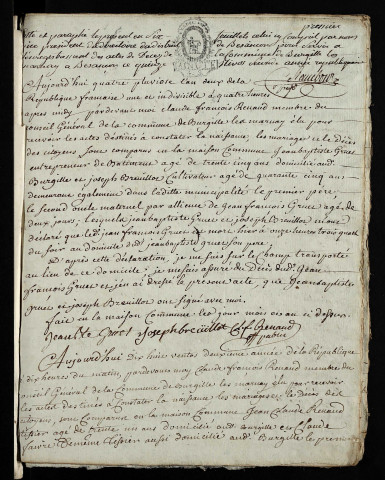 premier
Aujourd'hui quatre pluviose l'an deux de la
République française une et indivisible à quatre heures
après midy, pardevant moy Claude françois Renaud membre du
Conseil Général de la commune de Burgille les marnay élu pour
recevoir les actes destinés à constater la naissance, les mariages et le décès
des citoyens, sont comparus en la maison Commune Jeanbaptiste Grue
entrepreneur de Batiment agé de trente cinq ans domicilié aud.
Burgille et joseph Breuillot Cultivateur agé de quarante cinq ans
demeurant également dans la ditte municipalité le premier père,
le second oncle maternel par allience de Jean françois Grue agé de
deux jours; lesquels jeanbaptiste Grue et joseph Breuillot m'ont
déclaré que led. jean françois Grue est mort hier à onze heures trois quarts
du soir au domicile dud. jeanbaptiste grue son père.
D'après cette déclaration, je me suis sur le champ transporté
au lieu de ce domicile, je me suis assuré du Décès dud. Jean
françois Grue et j'en ai dressé le présent acte, que Jeanbaptiste
Grue et joseph Breuillot ont signé avec moi.
fait en la maison Commune les jour mois et an ci dessus.
joseph breuillot Cl. f. Renaud
off. public
Aujourd'hui dix huit ventose deuxieme année de la République
dix heures du matin, pardevant moy Claude françois Renaud membre du
conseil Général de la Commune de Burgille les marnay élu pour recevoir
les actes destinés à Constater la naissance les mariages, le décès des
citoyens, sont Comparus en la maison Commune Jean Claude Renaud
tissier agé de trente un ans domicilié aud. Burgille et Claude
aussi domicilié aud. Burgille le premier